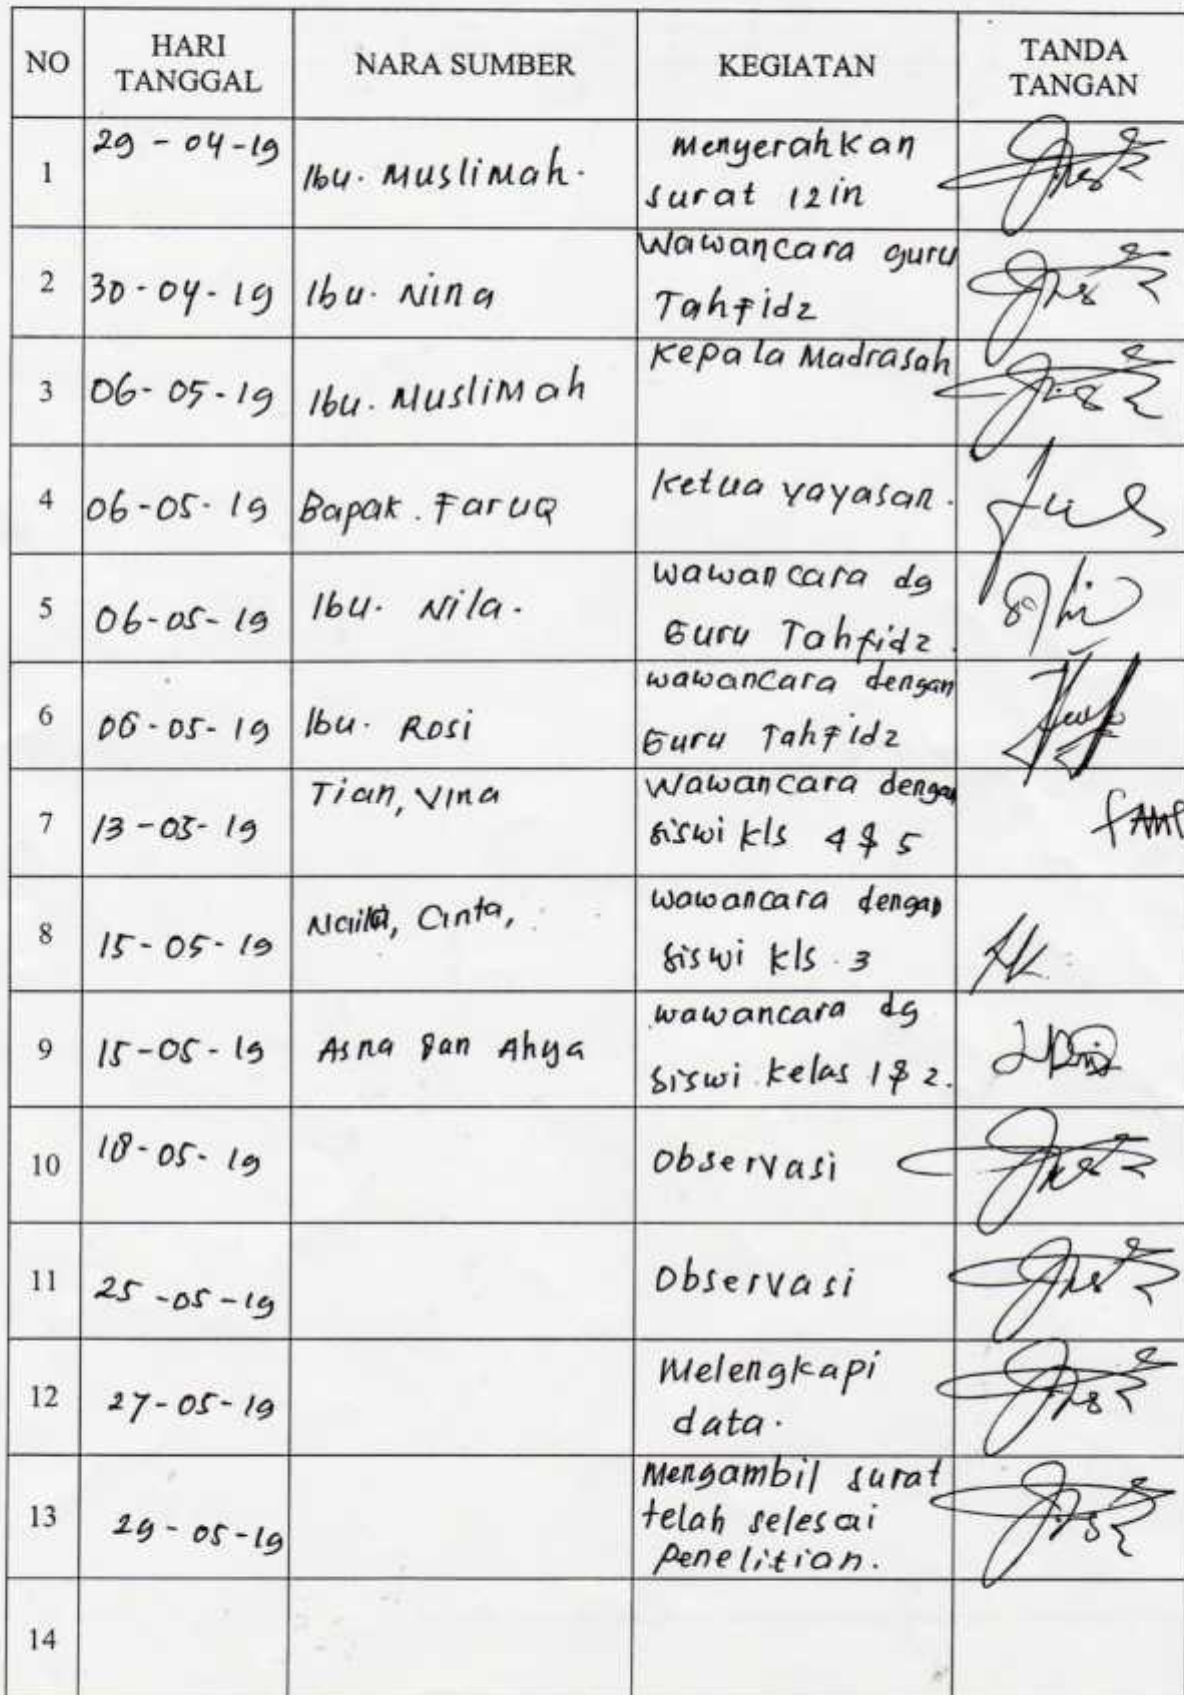 NO HARI TANGGAL NARA SUMBER KEGIATAN TANDA TANGAN
1 29-04-19 Ibu. Muslimah. menyerahkan
surat izin
2 30-04-19 Ibu. Nina Wawancara guru
Tahfidz
3 06-05-19 Ibu. Muslimah Kepala Madrasah
4 06-05-19 Bapak. Faruq Ketua yayasan.
5 06-05-19 Ibu. Nila. wawancara dg
Guru Tahfidz.
6 06-05-19 Ibu. Rosi wawancara dengan
Guru Tahfidz
7 13-05-19 Tian, Vina Wawancara dengan
siswi kls 4 & 5
8 15-05-19 Naila, Cinta, wawancara dengan
siswi kls. 3
9 15-05-19 Asna dan Ahya wawancara dg
siswi kelas 1 & 2.
10 18-05-19 Observasi
11 25-05-19 Observasi
12 27-05-19 Melengkapi
data.
13 29-05-19 Mengambil surat
telah selesai
penelitian.
14